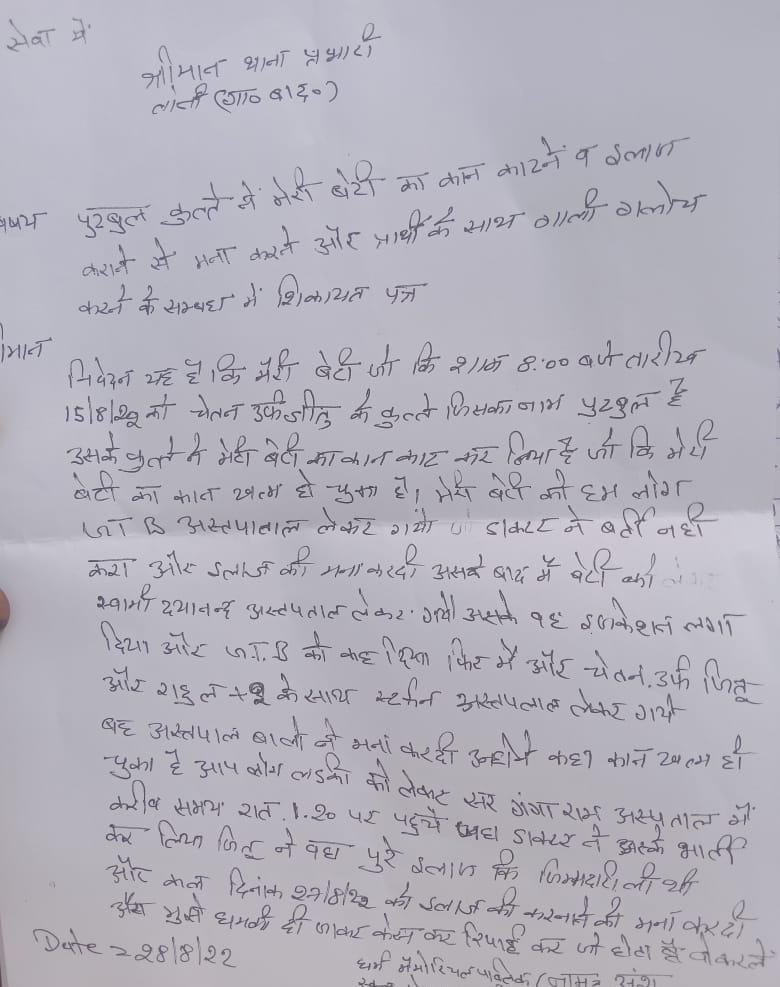 सेवा में
श्रीमान थाना प्रभारी
लोनी (गा० बाद०)
षय पुटबुल कुत्ते ने मेरी बेटी का कान काटने व इलाज
कराने से मना करते और प्रार्थी के साथ गाली गलोच
करने के सम्बध में शिकायत पत्र
मान
निवेदन यह है कि मेरी बेटी जो कि शाम 8:00 बजे तारीख
15/8/22 को चेतन उर्फ जीतु के कुत्ते जिसका नाम पुटबुल है
उसके कुत्ते ने मेरी बेटी का कान काट कर लिया है जो कि मेरी
बेटी का कान खत्म हो चुका है। मेरी बेटी को हम लोग
J.T.B अस्तपाताल लेकर गयो डाकटर ने बर्ती नही
करा और इलाज की मना करदी असके बाद में बेटी को
स्वामी दयानन्द अस्तपताल लेकर गयो असके वह इनकेशन लगा
दिया और J.T.B को कह दिया फिर में और चेतन उर्फ जितू
और राहुल के साथ स्टर्फन अस्तपताल लेकर गयो
वह अस्तपाल वालो ने मनां करदी उन्होंने कहा कान खत्म हो
चुका है आप लोग लडकी को लेकट सर गंगा राम अस्पताल में
करीब समय रात 1.20 पर पहुचे वध डाकटर ने असके भर्ती
कर लिया जितू ने वध पुरे इलाज कि जिम्मदारी ली थी
और कल दिनांक 27/8/22 को इलाज की करनाने की मनां करदी
और मुझे धमकी दी जाकर केस कर रिपार्ट कर जो होता है वो करले
Date = 28/8/22
धर्म मैमोरियल पब्लिक